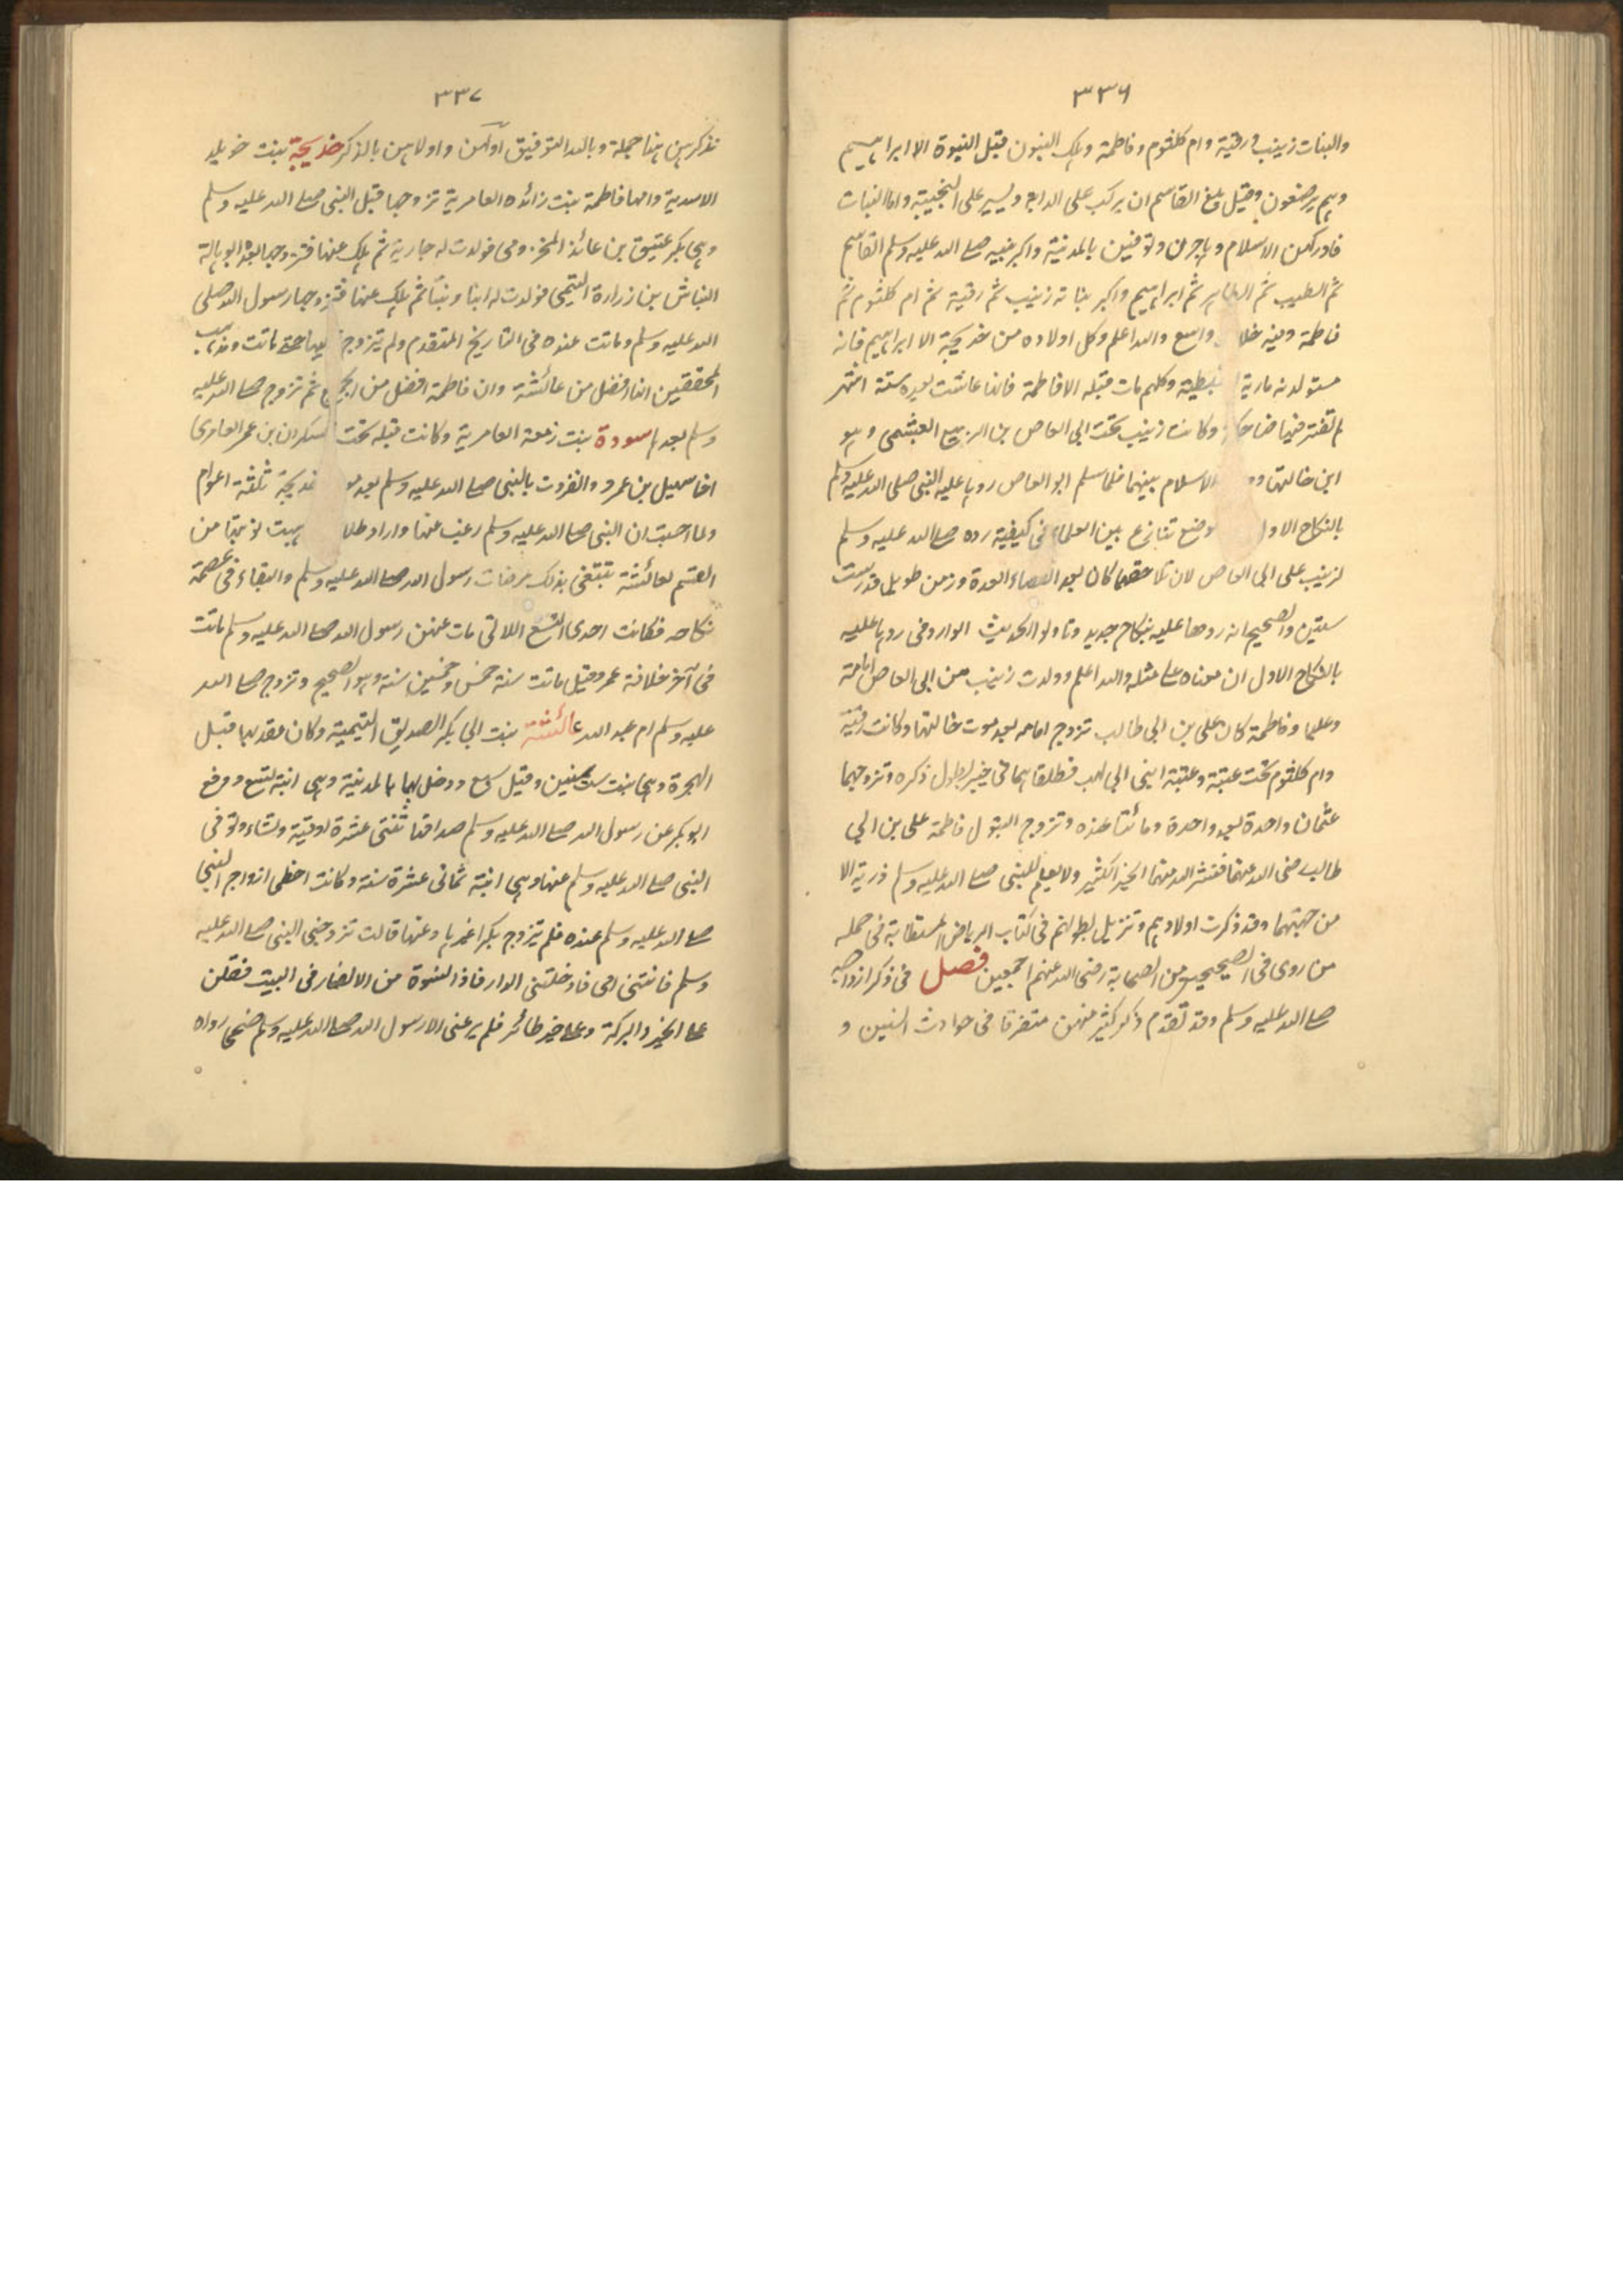 ٣٣٦
والبنات زينب ورقية وام كلثوم وفاطمة وهلك البنون قبل النبوة الا ابراهيم
وهم يرضعون وقيل بلغ القاسم ان يركب على الدابة ويسير على النجيبة واما البنات
فادركهن الاسلام وهاجرن وتوفين بالمدينة واكبر بنيه صلى الله عليه وسلم القاسم
ثم الطيب ثم الطاهر ثم ابراهيم واكبر بناته زينب ثم رقية ثم ام كلثوم ثم
فاطمة وفيه خلا واسع والله اعلم وكل اولاده من خديجة الا ابراهيم فانه
مستولدته مارية القبطية وكلهم مات قبله الا فاطمة فانها عاشت بعده ستة اشهر
لم تفتر فيها ضاحكة وكانت زينب تحت ابي العاص بن الربيع العبشمي وهو
ابن خالتها الاسلام بينهما فلما اسلم ابو العاص ردها عليه النبي صلى الله عليه وسلم
بالنكاح الاول وضع تنازع بين العلماء في كيفية رده صلى الله عليه وسلم
لزينب على ابي العاص لان تلاحقهما كان بعد انقضاء العدة وزمن طويل قدر ست
سنين والصحيح انه ردها عليه بنكاح جديد وتاولوا الحديث الوارد في ردها عليه
بالنكاح الاول ان معناه على مثله والله اعلم وولدت زينب من ابي العاص امامة
وعليا وفاطمة كان على بن ابي طالب تزوج امامه بعد موت خالتها وكانت رقية
وام كلثوم تحت عتبة وعتيبة ابني ابي لهب فطلقاهما في خبر يطول ذكره وتزوجهما
عثمان واحدة بعد واحدة وماتتا عنده وتزوج البتول فاطمة على بن ابي
طالب رضى الله عنهما فنشر الله منهما الخير الكثير ولا يعلم للنبي صلى الله عليه وسلم ذرية الا
من جهتهما وقد ذكرت اولادهم وتنزيل بطونهم في كتاب الرياض المستطابة في جملة
من روى في الصحيحين من الصحابة رضى الله عنهم اجمعين فصل في ذكر ازواجه
صلى الله عليه وسلم وقد تقدم ذكر كثير منهن متفرقا في حوادث السنين و
٣٣٧
نذكرهن هنا جملة وبالله التوفيق اولهن واولاهن بالذكر خديجة بنت خويلد
الاسدية وامها فاطمة بنت زائده العامرية تزوجها قبل النبي صلى الله عليه وسلم
وهي بكر عتيق بن عائذ المخزومي فولدت له جارية ثم هلك عنها فتزوجها بعده ابو هالة
النباش بن زرارة التيمي فولدت له ابنا وبنتا ثم هلك عنها فتزوجها رسول الله صلى
الله عليه وسلم وماتت عنده في التاريخ المتقدم ولم يتزوج عليها حتى ماتت ومذهب
المحققين انها افضل من عائشة وان فاطمة افضل من الجميع ثم تزوج صلى الله عليه
وسلم بعدها سودة بنت زمعة العامرية وكانت قبله تحت السكران بن عمر العامرى
اخا سهيل بن عمرو وانفردت بالنبي صلى الله عليه وسلم بعد خديجة ثلثة اعوام
ولما احست ان النبي صلى الله عليه وسلم رغب عنها واراد طلا وهبت نوبتها من
القسم لعائشة تبتغي بذلك مرضات رسول الله صلى الله عليه وسلم والبقاء في عصمة
نكاحه فكانت احدى التسع اللاتي مات عنهن رسول الله صلى الله عليه وسلم ماتت
في آخر خلافة عمر وقيل ماتت سنة خمس وخمسين سنة وهو الصحيح وتزوج صلى الله
عليه وسلم ام عبد الله عائشة بنت ابي بكر الصديق التيمية وكان عقد بها قبل
الهجرة وهي بنت ست سنين وقيل سبع ودخل بها بالمدينة وهي ابنة تسع ودفع
ابوبكر عن رسول الله صلى الله عليه وسلم صداقها ثنتى عشرة اوقية ونشاء وتوفى
النبي صلى الله عليه وسلم عنها وهي ابنة ثماني عشرة سنة وكانت احظى ازواج النبي
صلى الله عليه وسلم عنده فلم يتزوج بكرا غيرها وعنها قالت تزوجني النبي صلى الله عليه
وسلم فاتتنى امى فادخلتنى الدار فاذا نسوة من الانصار في البيت فقلن
على الخير والبركة وعلى خير طائر فلم يرعنى الا رسول الله صلى الله عليه وسلم ضحى رواه